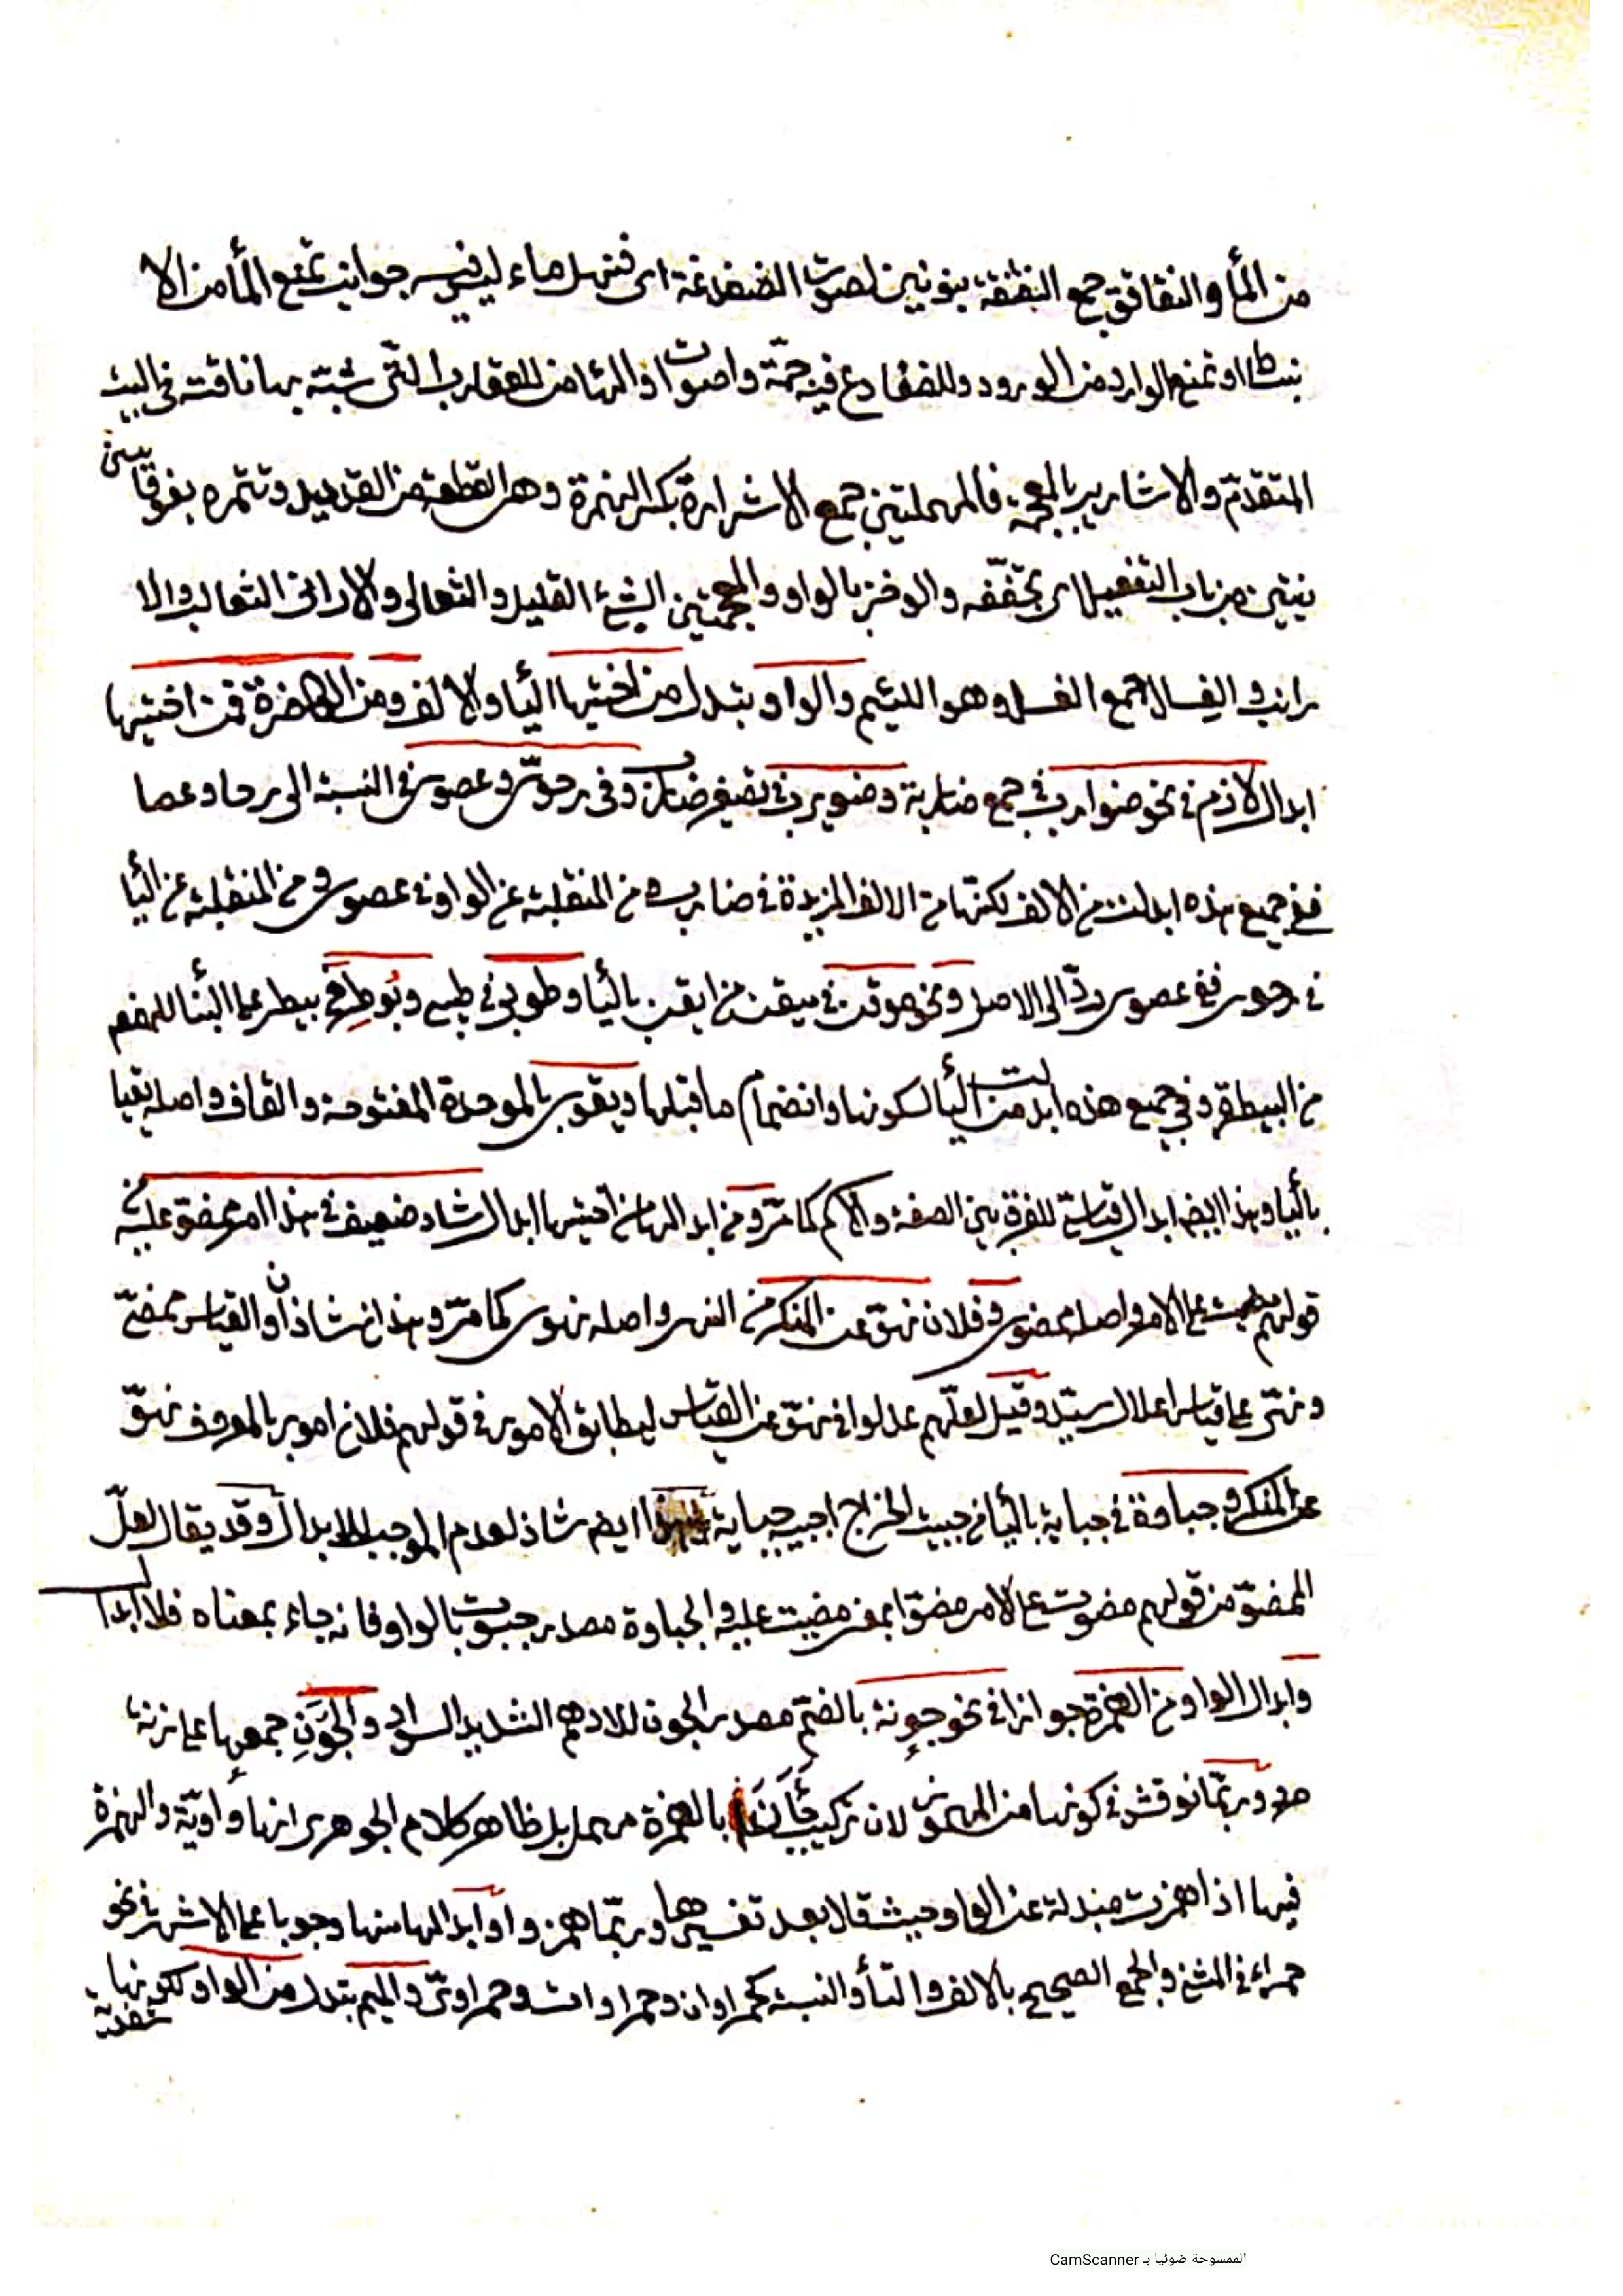 من المأ والنقانق جمع النقنقة بنونين لصوت الضفدغة اى فنهل ماء ليفر سه جوانب تمنع المأ من الا
نبطا او تمنع الوارد من الورود وللضفادع فيه جمة واصوات اذ الها من للعقارب التى شبته بها ناقته فى البيت
المتقدم والاشارير بالمعجمة فالمهملتين جمع الاشرارة بكسر الهمزة وهى القطعة من القديد وتتمره بفوقا
نيتين من باب التفعيل اى تجففه والوخز بالواو والمعجمتين الشئ القليل والثعالى والارانى الثعالب والا
رانب والفسال جمع الفسل وهو اللئيم والواو بتدل من اختيها اليأ والالف ومن الهمزة فمن اختيها
ابدال لازم فى نحو ضوارب فى جمع ضاربة وضويرب فى تصغير ضارب وفى رحوى وعصوى فى النسبة الى رحا وعصا
ففى جميع هذه ابدلت من الالف لكنها من الالف المزيدة فى ضارب ومن المنقلبة عن الواو فى عصوى ومن المنقلبة عن اليأ
فى رحوى ففى عصوى رد الى الاصل ونحو موقن فى ميقن من ايقن باليأ وطوبى فى طيبى وبوطر فى بيطر على البنأ للمفعو
من البيطرة وفى جميع هذه ابدلت من اليأ لسكونها وانضمام ما قبلها وبقوى بالموحدة المفتوحة والقاف واصله بقيا
باليأ وهذا ايضا ابدال قياسى للفرق بين الصفة والاسم كما مر ومن ابدالها من اختيها ابدال شاذ ضعيف فى هذا امر ممضو عليه
قولهم مضيت على الامر واصله ممضوى وفلان نهو عن المنكر من النهى واصله نهوى كما مر وهذان شاذان والقياس ممضى
ونهى على قياس اعلال سيد وقيل لعلهم عدلوا فى نهو عن القياس ليطابق الامور فى قولهم فلان امور بالمعروف نهو
عن المنكر وجباوة فى جباية باليأ من جبيت الخراج اجبيه جباية وهذا ايضا شاذ لعدم الموجب للابدال وقد يقال لعل
الممضو من قولهم مضوت على الامر مضوا بمعنى مضيت عليه والجباوة مصدر جبوت بالواو فانه جاء بمعناه فلا ابدا
وابدال الواو من الهمزة جوازا فى نحو جونة بالضم مصدر الجون للادهم الشديد السواد والجون جمعها على زنة
صرد وربما نوقش فى كونها من المهموز لان تركيب جأن بالهمزة مهمل بل ظاهر كلام الجوهرى انها واوية والهمزة
فيها اذا همزت مبدلة عن الواو حيث قال بعد تفسيرها وربما همزوا وابدالها منها وجوبا على الاشهر فى نحو
حمراء فى المثنى والجمع الصحيح بالالف والتأ والنسبة كحمراوان وحمراوات وحمراوى والميم بتدل من الواو لكونها
شفوية
الممسوحة ضوئيا بـ CamScanner